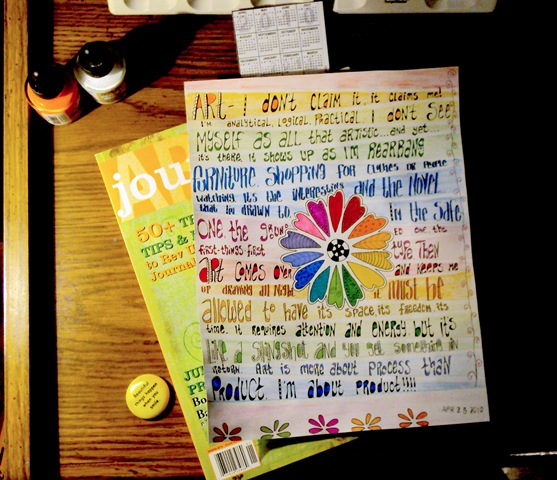 ART- I don't claim it, it claims me!
I'm analytical, logical, practical. I don't see
myself as all that artistic...and yet...
it's there. it shows up as I'm rearrang
furniture, shopping for clothes or people
watching. It's the interesting and the novel
that I'm drawn to. in the safe
first-things-first type. Then
ART comes over and keeps me
up drawing all night. it must be
allowed to have its space, its freedom, its
time. it requires attention and energy, but it's
like a slingshot and you get something in
return. Art is more about process than
product. I'm about product!!!!
APR 23 2010
jou
50+ T
TIPS &
to Rev U
Journal
JU
PR
Bo
Ba
Beautiful
things happen
when you
smile